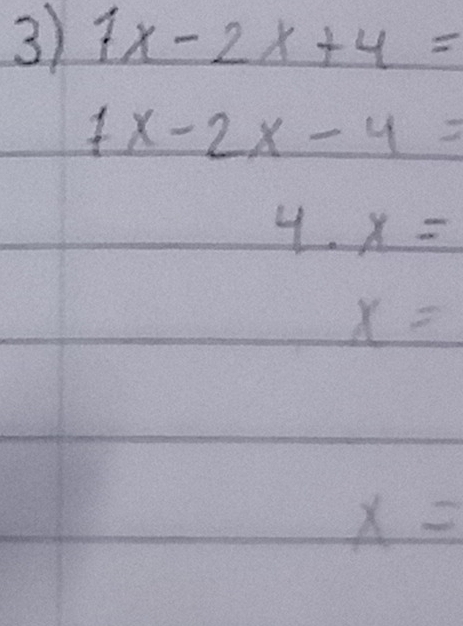 3) 7x - 2x + 4 =
7x - 2x - 4 =
4. x =
x =
x =